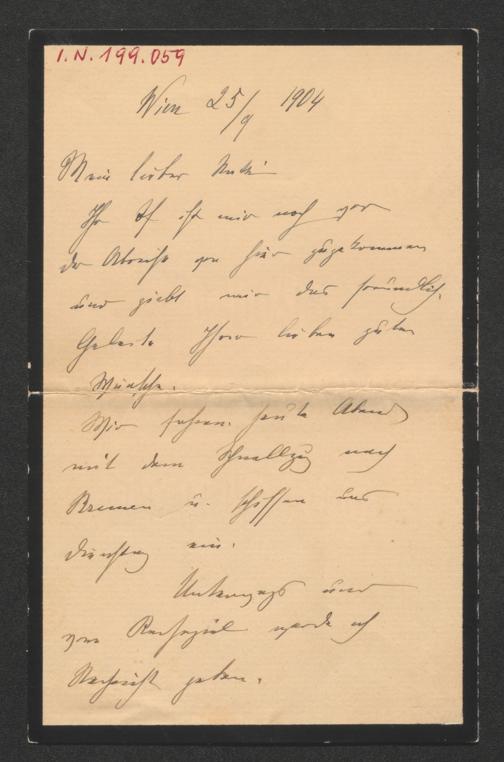 I.N. 199.059
Wien 25/9 1904
Mein lieber
Ihr ist mir noch vor
der Abreise von hier zugekommen
und giebt mir das freundlich.
Geleite Ihrer lieben guten
Wünsche.
Wir fahren heute Abend
mit dem Schnellzug nach
Bremen u. schiffen uns
Dienstag ein.
Unterwegs und
vom Reiseziel werde ich
Nachricht geben.